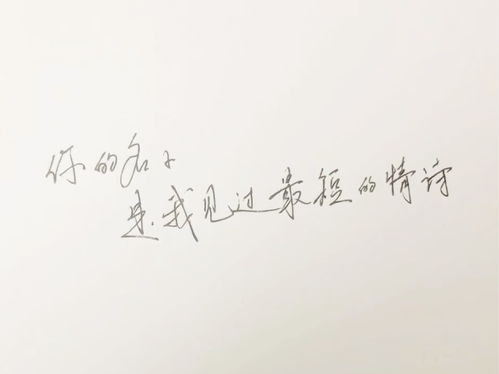 你的名字
是我见过最短的情诗